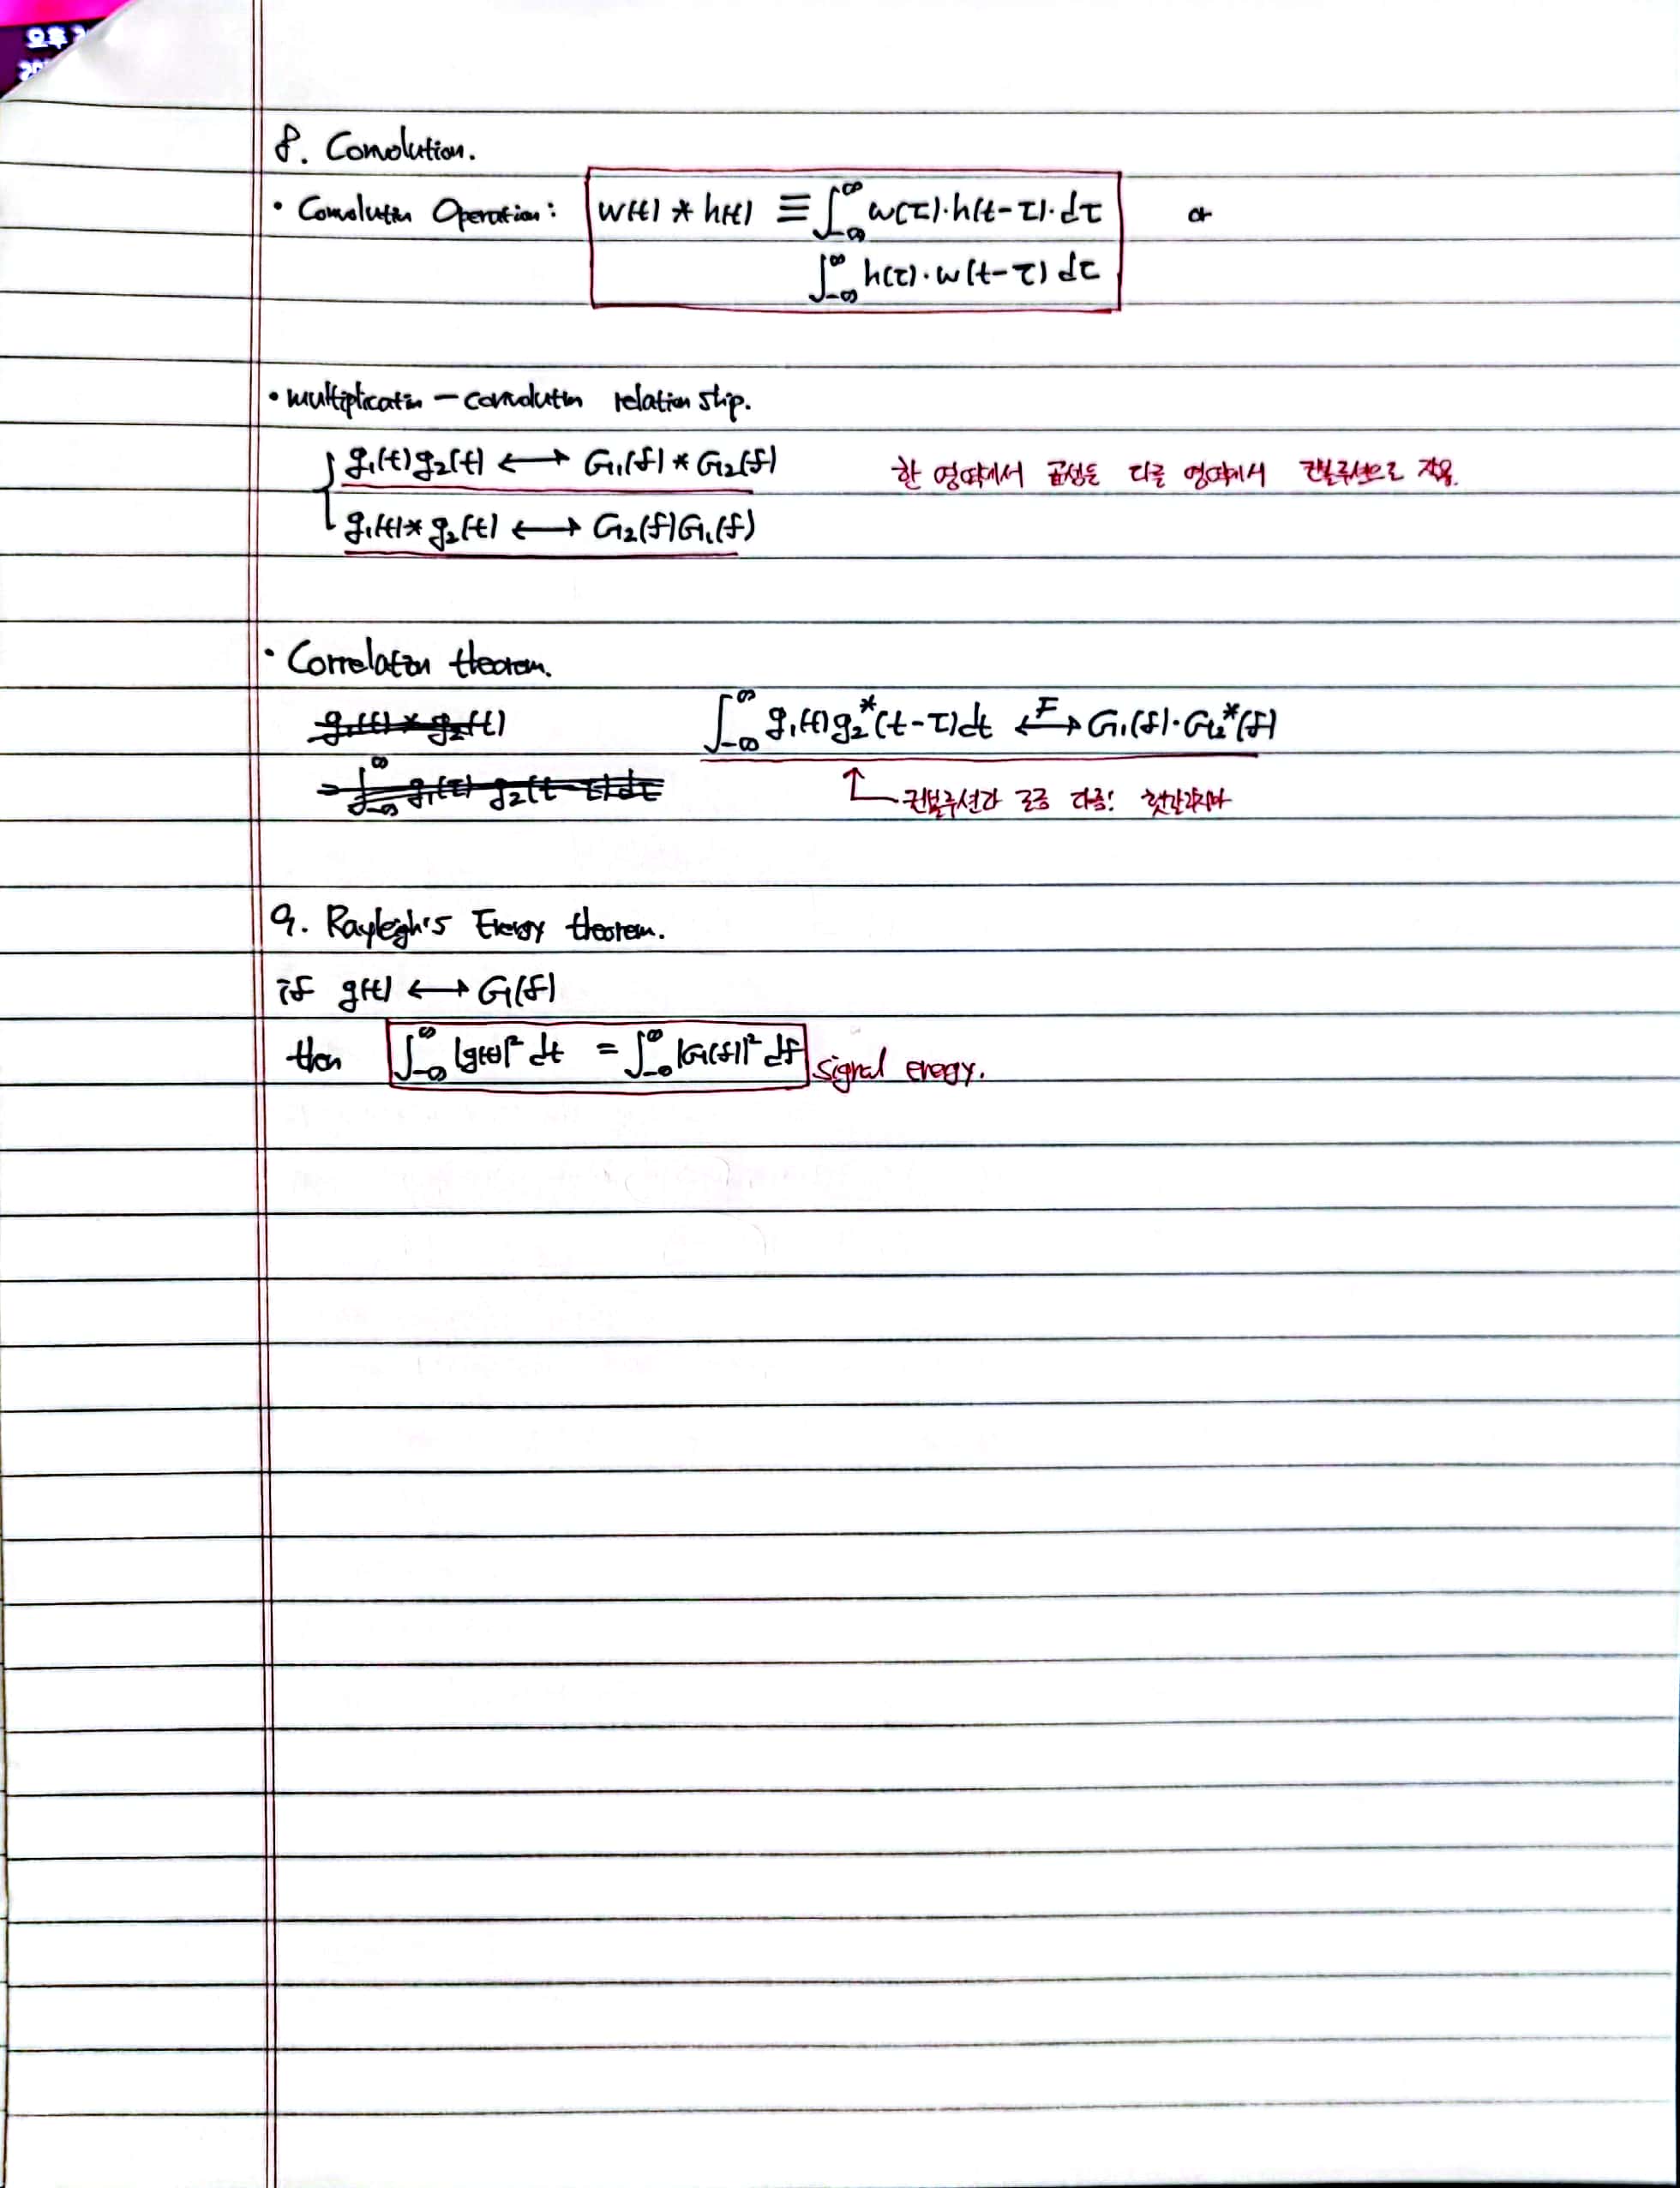 오후
8. Convolution.
• Convolution Operation: w(t) * h(t) ≡ ∫_{-∞}^{∞} w(τ)·h(t-τ)·dτ or
∫_{-∞}^{∞} h(τ)·w(t-τ) dτ
• multiplication - convolution relationship.
g₁(t)g₂(t) ↔ G₁(f) * G₂(f) 한 영역에서 곱셈은 다른 영역에서 컨볼루션으로 작용.
g₁(t) * g₂(t) ↔ G₂(f)G₁(f)
• Correlation theorem.
g₁(t) * g₂(t) ∫_{-∞}^{∞} g₁(t)g₂*(t-τ)dt ↔F G₁(f)·G₂*(f)
= ∫_{-∞}^{∞} g₁(τ) g₂(t-τ)dτ 컨볼루션과 조금 다름! 헷갈리지마
9. Rayleigh's Energy theorem.
if g(t) ↔ G(f)
then ∫_{-∞}^{∞} |g(t)|² dt = ∫_{-∞}^{∞} |G(f)|² df signal energy.